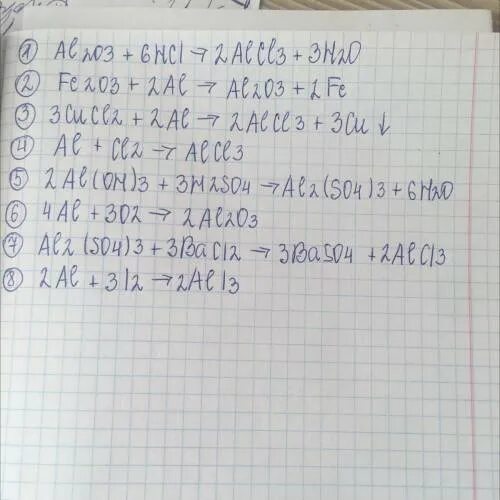 ① Al2O3 + 6HCl → 2AlCl3 + 3H2O
② Fe2O3 + 2Al → Al2O3 + 2Fe
③ 3CuCl2 + 2Al → 2AlCl3 + 3Cu ↓
④ Al + Cl2 → AlCl3
⑤ 2Al(OH)3 + 3H2SO4 → Al2(SO4)3 + 6H2O
⑥ 4Al + 3O2 → 2Al2O3
⑦ Al2(SO4)3 + 3BaCl2 → 3BaSO4 + 2AlCl3
⑧ 2Al + 3I2 → 2AlI3